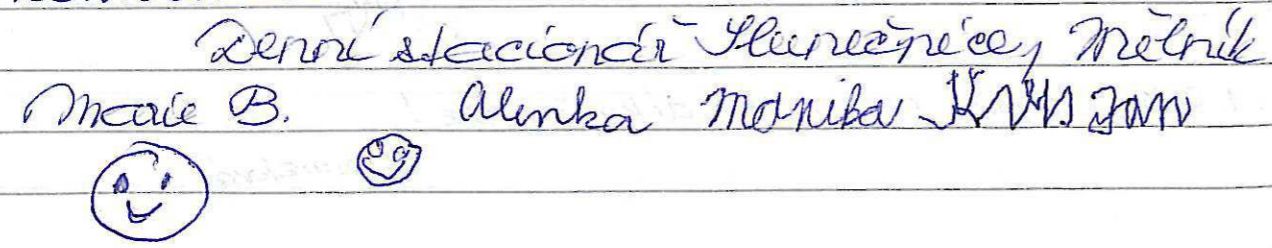 Denní stacionář Slunečnice, Mělník
Marie B. Alenka Monika JAN